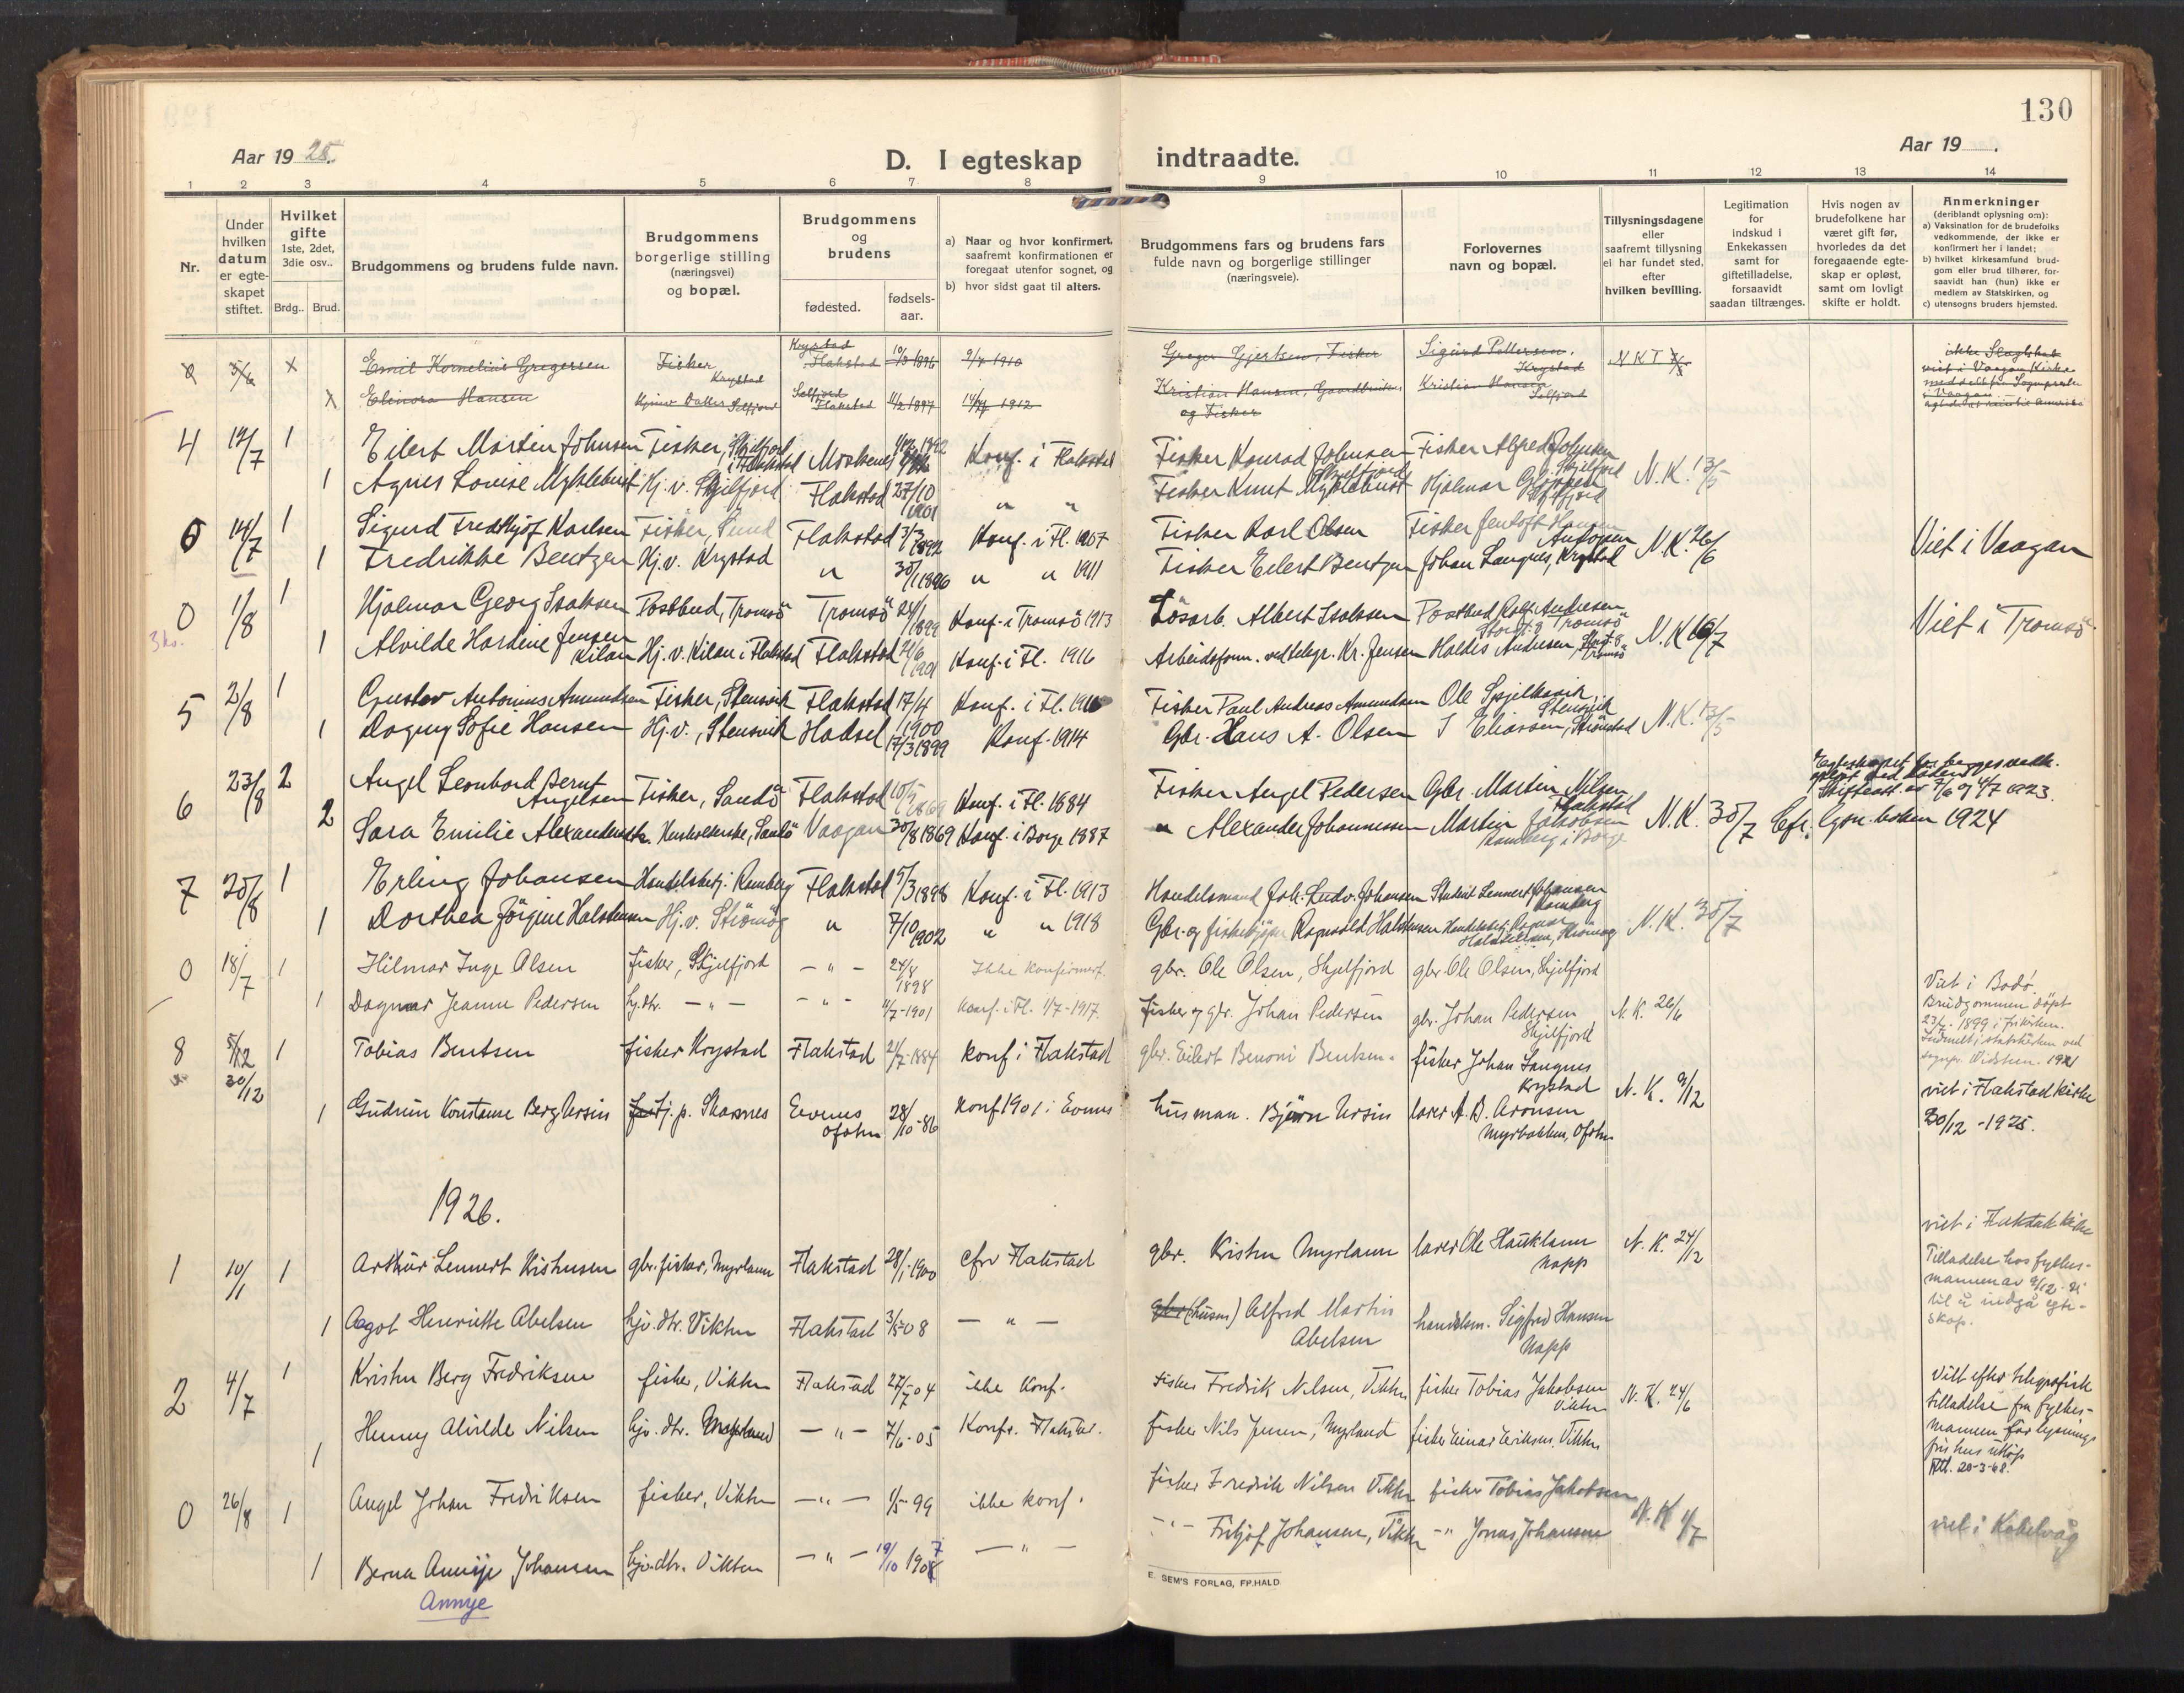 130
Aar 19 25.
D. I egteskap
indtraadte.
Aar 19 .
1 2 3 4 5 6 7 8 9 10 11 12 13 14
Nr.
Under hvilken datum er egte-skapet stiftet.
Hvilket gifte
1ste, 2det, 3die osv..
Brdg.. Brud.
Brudgommens og brudens fulde navn.
Brudgommens borgerlige stilling
(næringsvei)
og bopæl.
Brudgommens og brudens
fødested.
fødsels-aar.
a) Naar og hvor konfirmert, saafremt konfirmationen er foregaat utenfor sognet, og
b) hvor sidst gaat til alters.
Brudgommens fars og brudens fars
fulde navn og borgerlige stillinger
(næringsveie).
Forlovernes
navn og bopæl.
Tillysningsdagene
eller
saafremt tillysning
ei har fundet sted,
efter
hvilken bevilling.
Legitimation
for
indskud i
Enkekassen
samt for
giftetilladelse,
forsaavidt
saadan tiltrænges.
Hvis nogen av
brudefolkene har
været gift før,
hvorledes da det
foregaaende egte-
skap er opløst,
samt om lovligt
skifte er holdt.
Anmerkninger
(deriblandt oplysning om):
a) Vaksination for de brudefolks
vedkommende, der ikke er
konfirmert her i landet;
b) hvilket kirkesamfund brud-
gom eller brud tilhører, for-
saavidt han (hun) ikke er
medlem av Statskirken, og
c) utensogns bruders hjemsted.
5/6 x Emil Kornelius Gregersen Fisker Krystad Krystad Flakstad 10/3 1896 9/7 1910 Greger Gjertsen, Fisker Sigurd Pettersen, Krystad N K T
x Elinora Hansen Selfjord Selfjord Flakstad 11/2 1897 14/7 1912 Kristian Hansen, Gaardbruker og Fisker Kristian Hansen Selfjord
4 12/7 1 Eilert Martin Johnsen Fisker, Skjelfjord i Flakstad Moskenes 1892 Konf. i Flakstad Fisker Konrad Johnsen Fisker Alfred Johnsen Skjelfjord N.K. 13/5
1 Agnes Lovise Myklebust Hj. v. Skjelfjord Flakstad 27/10 1901 " " Fisker Knut Myklebust Skjelfjord Hjalmar
0 14/7 1 Sigurd Fredthjof Karlsen Fisker, Sund Flakstad 3/3 1892 Konf. i Fl. 1907 Fisker Karl Olsen Fisker Jentoft Hansen N.K. 26/6 Viet i Vaagan
1 Fredrikke Bentzen Hj. v. Krystad " 30/1 1896 " " 1911 Fisker Eilert Bentzen Johan Sangnes, Krystad
0 1/8 1 Hjalmar Georg Isaksen Postbud, Tromsö Tromsö 24/1 1899 Konf. i Tromsö 1913 Lösarb. Albert Isaksen Postbud Rolf Andresen Storgt. 9 Tromsö N.K. 16/7 Viet i Tromsö
3 ks.
1 Alvilde Hardine Jensen Kilan Hj. v. Kilan i Flakstad Flakstad 21/6 1901 Konf. i Fl. 1916 Arbeidsform. ved telegr. Kr. Jensen Haldis Andresen, Tromsö
5 2/8 1 Gustav Antonius Amundsen Fisker, Stensvik Flakstad 17/4 1900 Konf. i Fl. Fisker Paul Andreas Amundsen Ole Spjelkavik, Stensvik N.K. 13/5
1 Dagny Sofie Hansen Hj. v., Stensvik Hadsel 17/3 1899 Konf. 1914 Gbr. Hans A. Olsen J Eliassen, Strömstad
6 23/8 2 Angel Leonhard Bernt Angelsen Fisker, Sandö Flakstad 10/5 1862 Konf. i Fl. 1884 Fisker Angel Pedersen Gbr. Martin Nilsen Flakstad N.K. 30/7
2 Sara Emilie Alexandersdtr. Husholderske, Sandö Vaagan 30/8 1869 Konf. i Borge 1887 " Alexander Johannessen Martin Jakobsen Ramberg i Borge Cfr. lysn. boken 1924
7 20/8 1 Erling Johansen Handelsbetj. Ramberg Flakstad 5/3 1898 Konf. i Fl. 1913 Handelsmand Joh. Ludv. Johansen Student Lennert Johansen Ramberg N.K. 30/7
1 Dorthea Jörgine Halstensen Hj. v. Strömög " 7/10 1902 " " 1918 Gbr. og fiskekjöper Ragnvald Halstensen Handelsbetj. Ragnar Halstensen, Strömög
0 18/7 1 Hilmar Inge Olsen fisker, Skjelfjord — " — 24/8 1898 Ikke konfirmert. gbr. Ole Olsen, Skjelfjord gbr. Ole Olsen, Skjelfjord N.K. 26/6
1 Dagmar Jeanne Pedersen hj. dtr. — " — — " — 11/7-1901 konf. i Fl. 1/7-1917. fisker og gbr. Johan Pedersen gbr. Johan Pedersen Skjelfjord
Viet i Bodö. Brudgommen döpt 23/4 1899 i frikirken. Indmeldt i statskirken ved sognepr. Vidsteen. 1921
8 5/12 30/12 1 Tobias Bentsen fisker Krystad Flakstad 21/7-1884 konf i Flakstad gbr. Eilert Benoni Bentsen. fisker Johan Sangnes Krystad N.K. 9/12 viet i Flakstad kirke 30/12 -1925.
1 Gudrun Konstanse Berg Ursin tj. p. Skarnes Evenes Ofoten 28/10-86 konf 1901 i Evenes husman. Bjørn Ursin lærer A. B. Aronsen Myrbakken, Ofoten
1926.
1 10/1 1 Arthur Lennert Kristensen gbr. fisker, Myrland Flakstad 28/1-1900 cfr Flakstad gbr. Kristen Myrland lærer Ole Haukland Napp N.K. 24/12 viet i Flakstad kirke
1 Aagot Henriette Abelsen hjv. dtr. Vikten Flakstad 3/5-08 — " — gbr (husm) Alfred Martin Abelsen handelsm. Sigfred Hansen Napp
Tilladelse hos fylkes-mannen av 9/12-25 til å indgå egte-skap.
2 4/7 1 Kristen Berg Fredriksen fisker, Vikten Flakstad 27/7-04 ikke konf. Fisker Fredrik Nilsen, Vikten fisker Tobias Jakobsen Vikten N.K. 24/6
1 Henny Alvilde Nilsen hjv. dtr. Myrland — " — 7/6-05 Konfr. Flakstad. fisker Nils Jensen, Myrland fisker Einar Eriksen. Vikten
Viet efter telegrafisk tilladelse fra fylkes-mannen før lysnings
Att. 20-3-68.
0 26/8 1 Angel Johan Fredriksen fisker, Vikten — " — 1/5-99 ikke konf. fisker Fredrik Nilsen Vikten fisker Tobias Jakobsen N.K. 4/7 viet i Kabelvåg
1 Berna Annye Johansen hjv. dtr. Vikten — " — 19/10 1907 — " — — " — Fritjof Johansen, Vikten — " Jonas Johansen
Annye
E. SEM'S FORLAG, FR.HALD